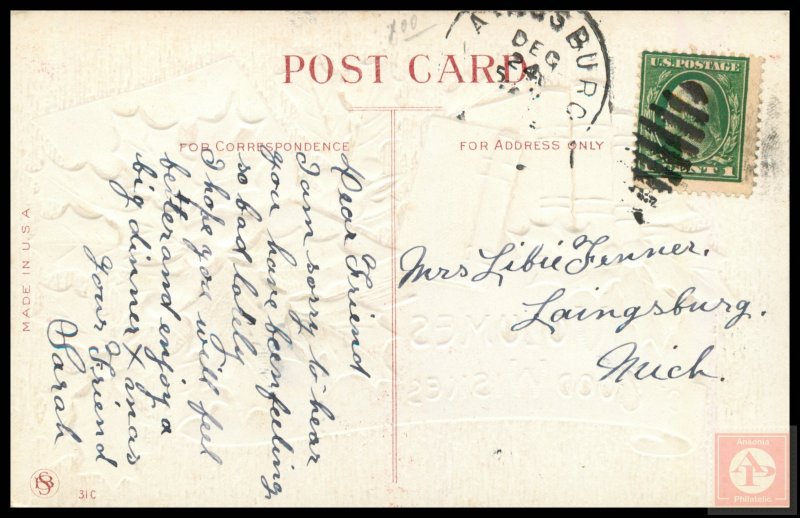 POST CARD
FOR CORRESPONDENCE
FOR ADDRESS ONLY
LAINGSBURG
DEC
24
U.S. POSTAGE
CENT 1
Dear Friend
I am sorry to hear
you have been feeling
so bad lately
I hope you will feel
better and enjoy a
big dinner Xmas
your Friend
Sarah
Mrs Libie Fenner.
Laingsburg.
Mich.
MADE IN U.S.A.
31C
Ansonia
AP
Philatelic